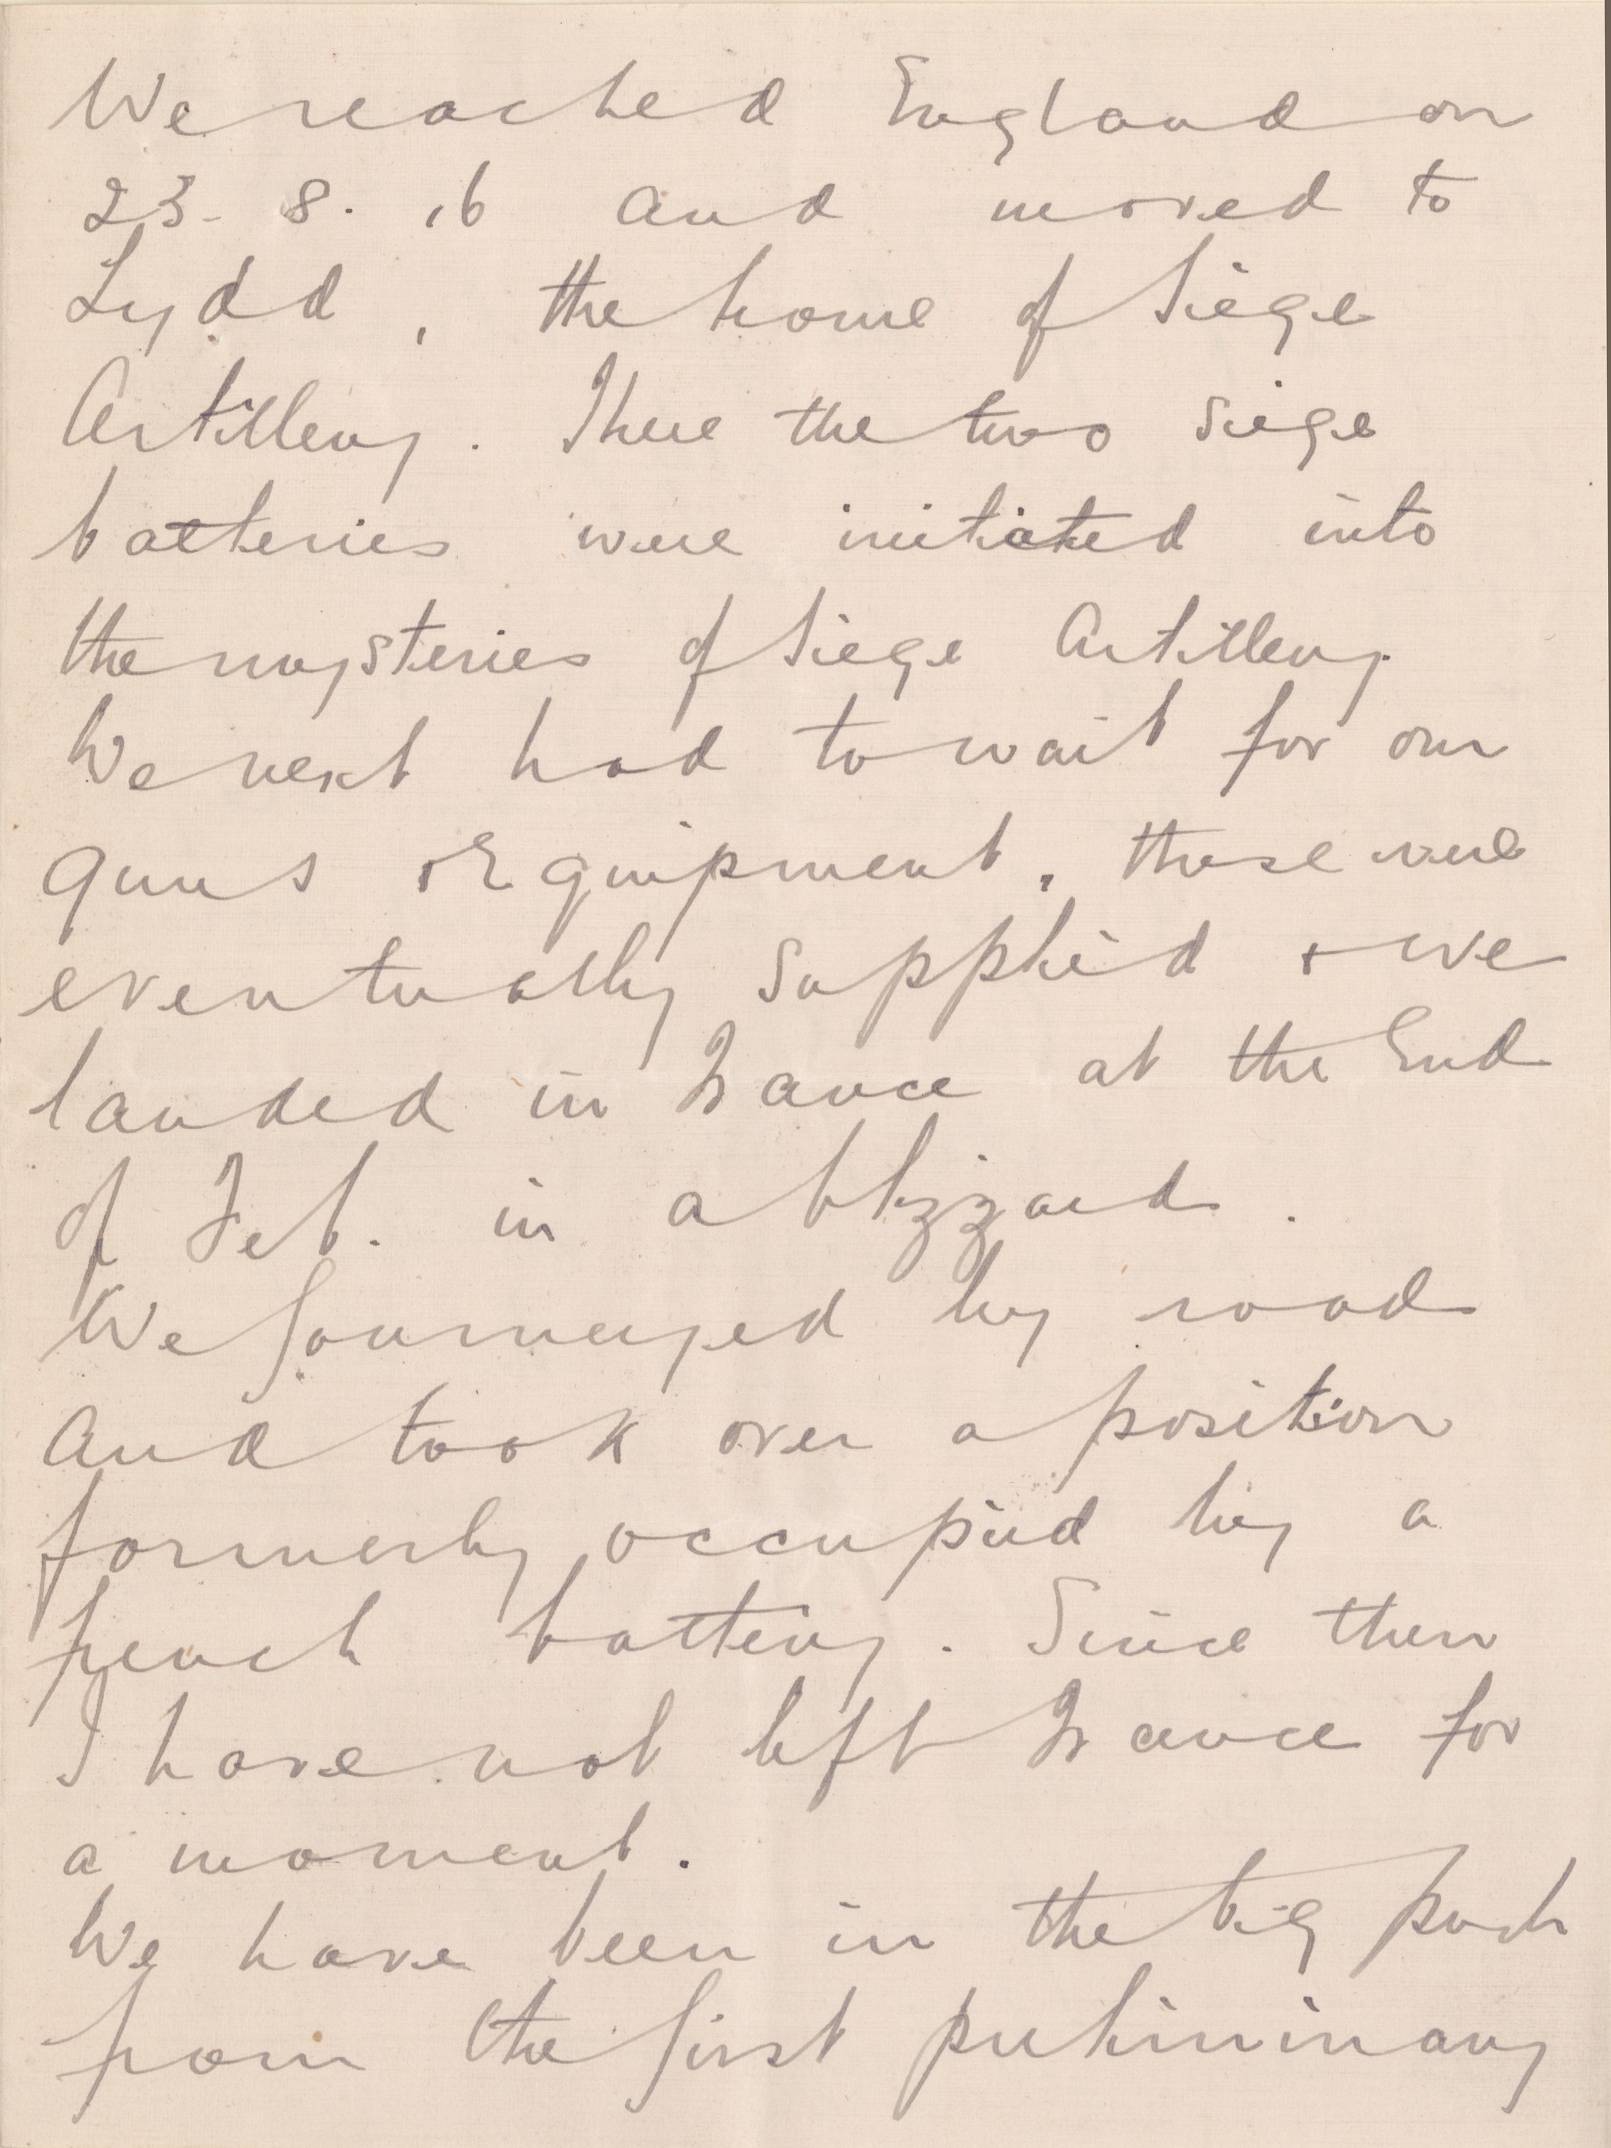 We reached England on
23. 8. 16 and moved to
Lydd, the home of Siege
Artillery. There the two siege
batteries were initiated into
the mysteries of Siege Artillery.
We next had to wait for our
guns & Equipment, these were
eventually supplied & we
landed in France at the End
of Feb. in a blizzard.
We journeyed by road
and took over a position
formerly occupied by a
french battery. Since then
I have not left France for
a moment.
We have been in the big push
from the first preliminary